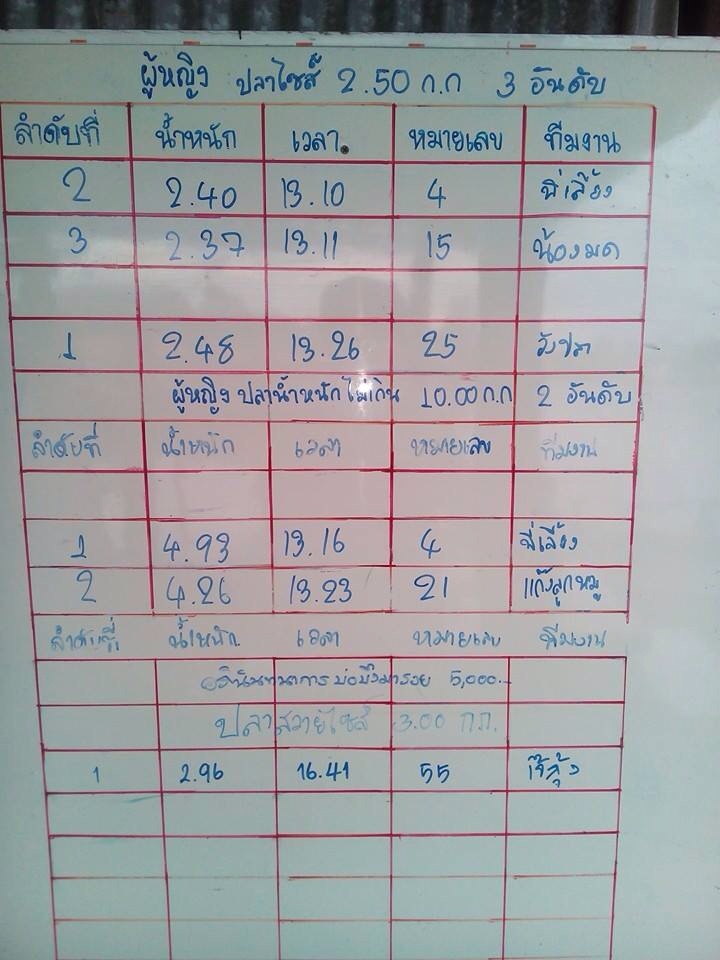 ผู้หญิง ปลาไซส์ 2.50 ก.ก 3 อันดับ
ลำดับที่ น้ำหนัก เวลา. หมายเลข ทีมงาน
2 2.40 13.10 4 พี่เลี้ยง
3 2.37 13.11 15 น้องมด
1 2.48 13.26 25 วังปลา
ผู้หญิง ปลาน้ำหนักไม่เกิน 10.00 ก.ก 2 อันดับ
ลำดับที่ น้ำหนัก เวลา หมายเลข ทีมงาน
1 4.93 13.16 4 พี่เลี้ยง
2 4.26 13.23 21 แก๊งลูกหมู
ลำดับที่ น้ำหนัก เวลา หมายเลข ทีมงาน
5,000.-
ปลาสวายไซส์ 3.00 ก.ก.
1 2.96 16.41 55 เจ๊สุ้ง